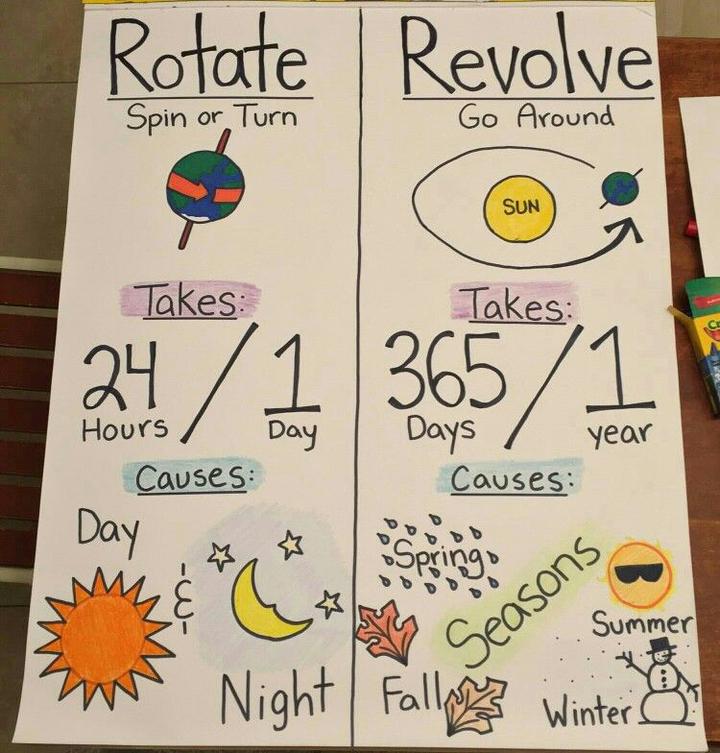 Rotate
Spin or Turn
Takes:
24 / 1
Hours Day
Causes:
Day
&
Night
Revolve
Go Around
SUN
Takes:
365 / 1
Days year
Causes:
Spring
Seasons
Summer
Fall
Winter